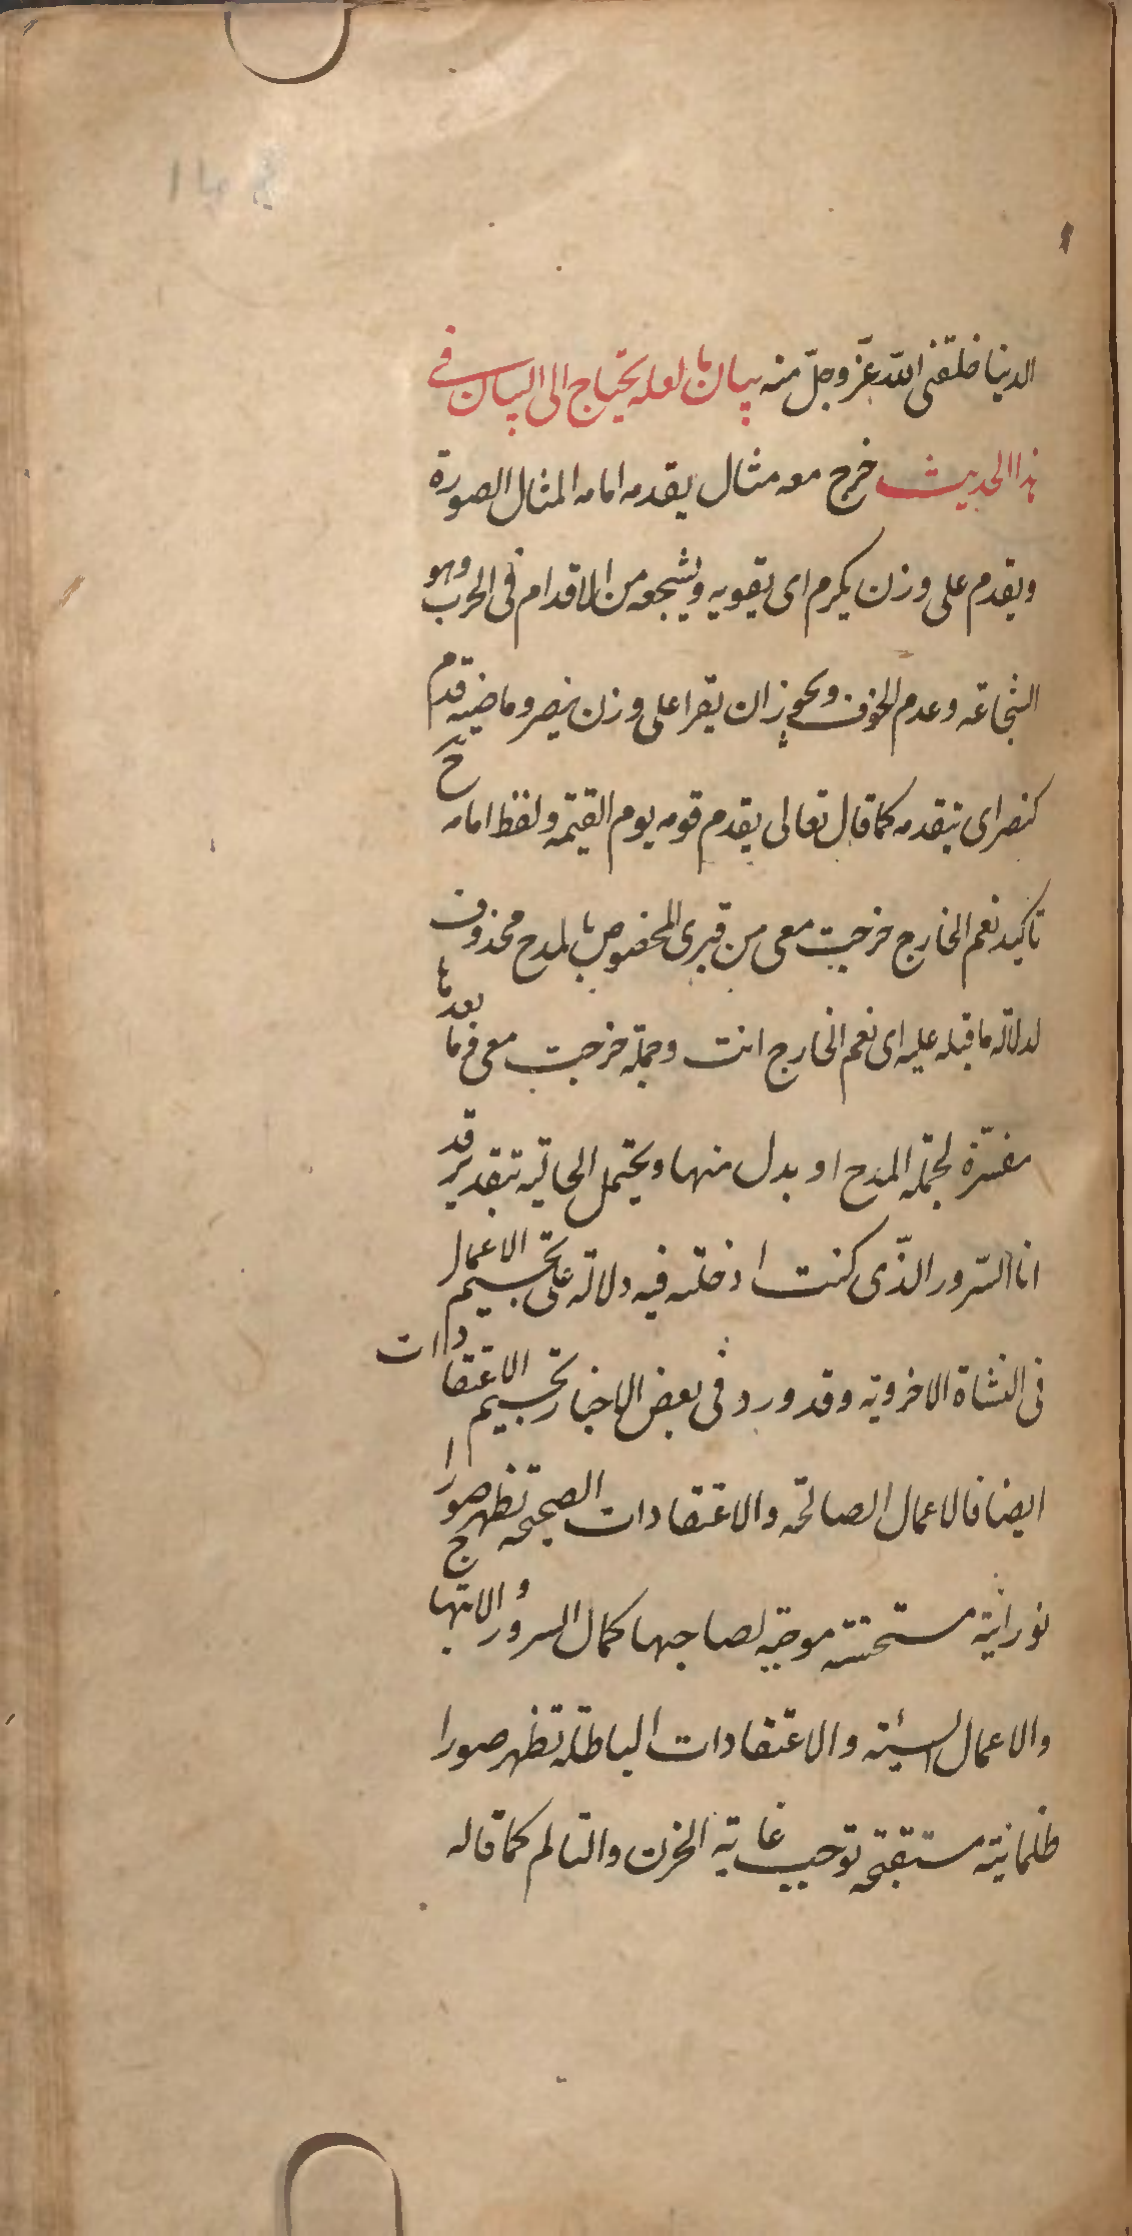 الدنيا خلقنى الله عزّ وجلّ منه بيان ما لعله يحتاج الى البيان فى
هذا الحديث خرج معه مثال يقدمه امامه المثال الصورة
ويقدم على وزن يكرم اى يقويه ويشجعه من الاقدام فى الحرب وهو
الشجاعة وعدم الخوف ويجوز ان يقرا على وزن ينصر وماضيه قدم
كنصر اى يتقدمه كما قال تعالى يقدم قومه يوم القيمة ولفظ امامه ح
تاكيد نعم الخارج خرجت معى من قبرى المخصوص بالمدح محذوف
لدلالة ما قبله عليه اى نعم الخارج انت وجملة خرجت معى وما بعدها
مفسّرة لجملة المدح او بدل منها ويحتمل الحالية بتقدير قد
انا السّرور الذّى كنت ادخلته فيه دلالة على تجسيم الاعمال
فى النشاة الاخروية وقد ورد فى بعض الاخبار تجسيم الاعتقادات
ايضا فالاعمال الصالحة والاعتقادات الصحيحة تظهر صورا
نورانية مستحسنة موجبة لصاحبها كمال السرور والابتهاج
والاعمال السيئة والاعتقادات الباطلة تظهر صورا
ظلمانية مستقبحة توجب غاية الحزن والتالم كما قاله